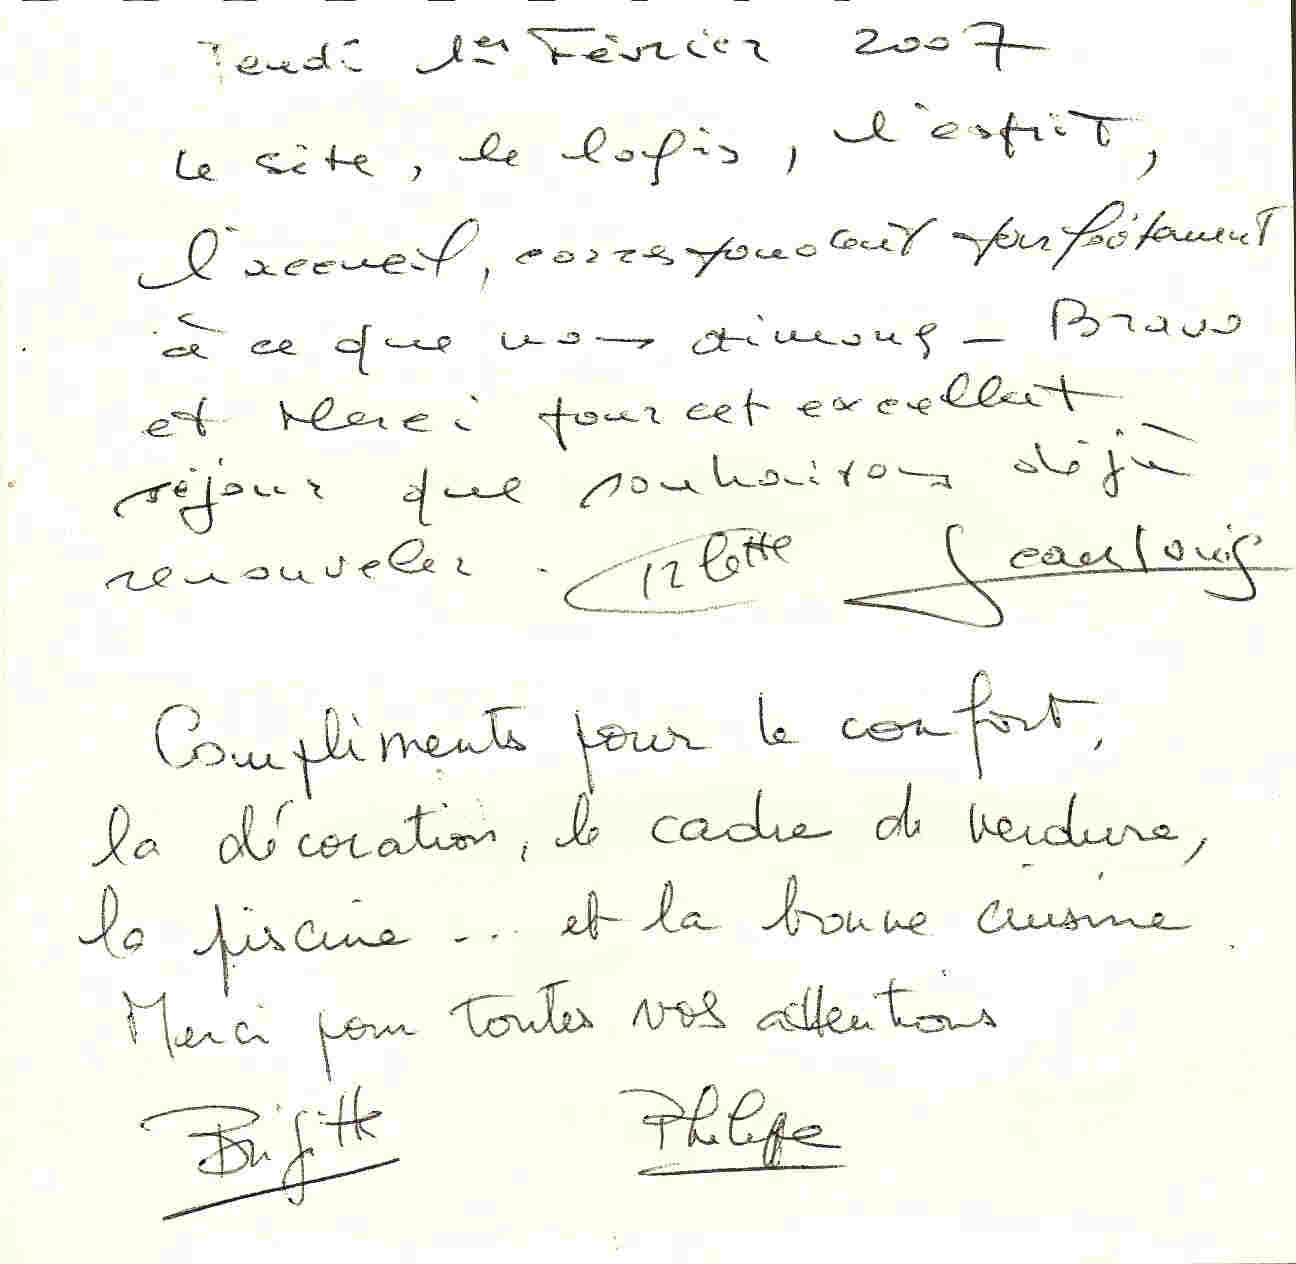 Jeudi 1er Février 2007
Le site, le logis, l'esprit,
l'accueil, correspondent parfaitement
à ce que nous aimons - Bravo
et Merci pour cet excellent
séjour que souhaitons déjà
renouveler. Arlette Jean Louis
Compliments pour le confort,
la décoration, le cadre de verdure,
la piscine ... et la bonne cuisine
Merci pour toutes vos attentions
Brigitte Philippe